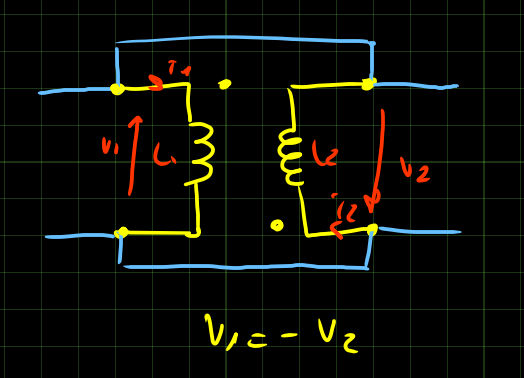 i1
v1
L1
L2
v2
i2
V1 = - V2